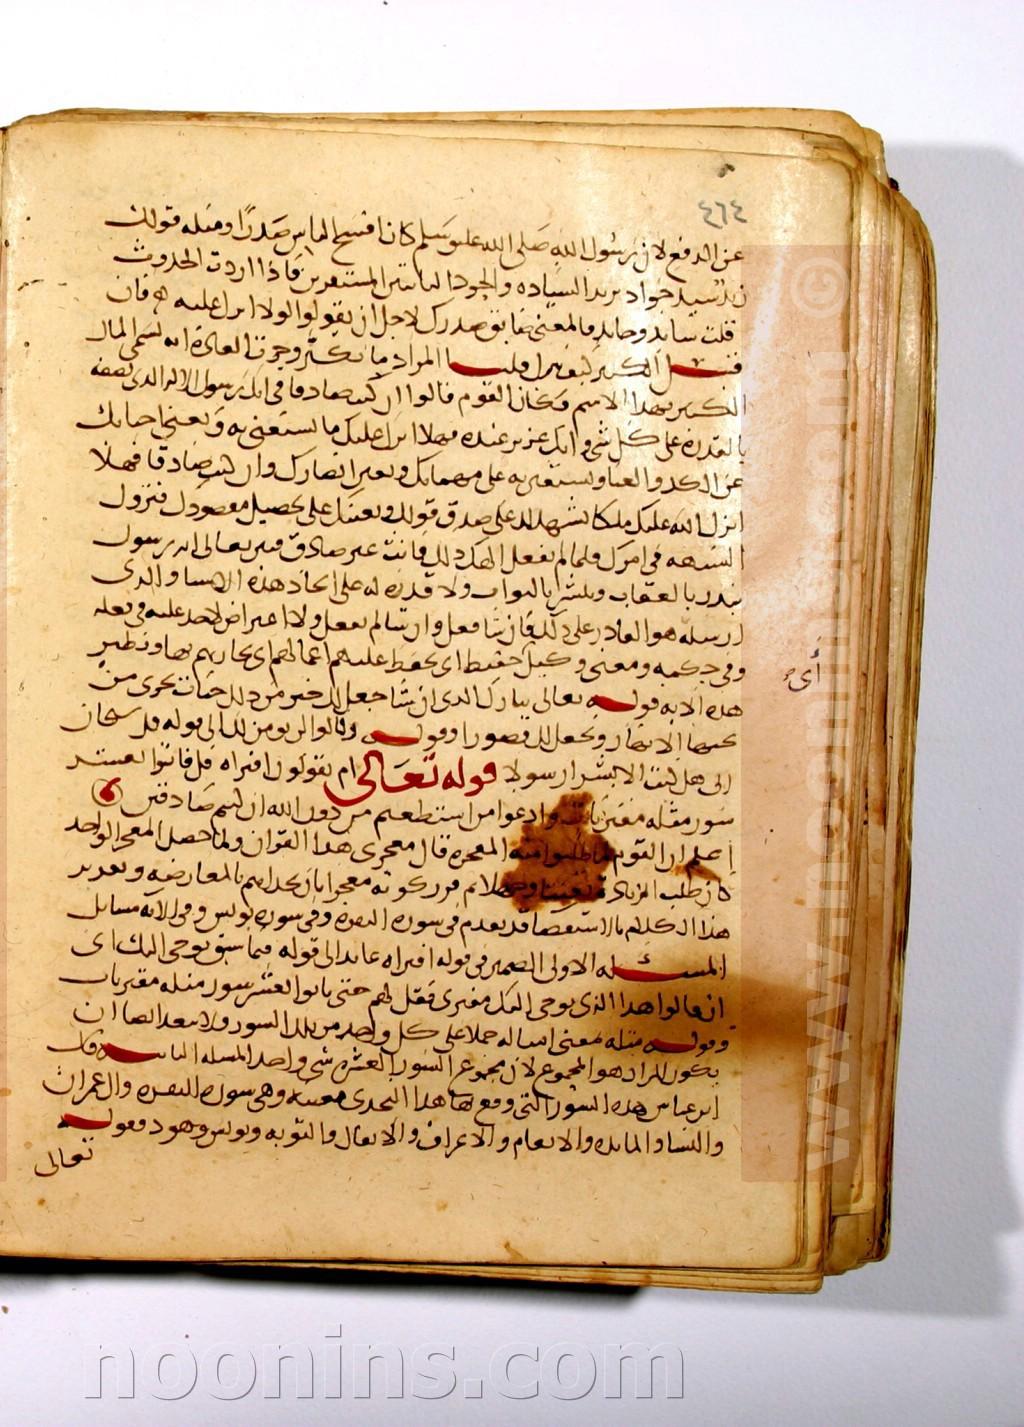 ٤٦٤
عن الدفع لان رسول الله صلى الله عليه وسلم كان افسح الناس صدرا ومثله قولك
زيد سيد جواد تريد السيادة والجود الثابتين المستقرين فاذا اردت الحدوث
قلت سائد وجائد والمعنى ضائق صدرك لاجل ان يقولوا لولا انزل عليه فان
قيل الكنز كيف ينزل قلنا المراد ما يكنز وجرت العادة انه يسمى المال
الكثير بهذا الاسم فكان القوم قالوا ان كنت صادقا في انك رسول الاله الذي تصفه
بالقدرة على كل شي وانك عزيز عنده فهلا انزل عليك ما تستغني به وتغني احبابك
عن الكد والعنا وتستعين به على مهماتك وتعين انصارك وان كنت صادقا فهلا
انزل الله عليك ملكا يشهد لك على صدق قولك ويعينك على تحصيل مقصودك فتزول
الشبهة في امرك فلما لم يفعل الهك ذلك فانت غير صادق فبين تعالى انه رسول
ينذر بالعقاب ويبشر بالثواب ولا قدرة له على ايجاد هذه الاشيا والذي
ارسله هو القادر على ذلك فان شا فعل وان شا لم يفعل ولا اعتراض لاحد عليه في فعله
وفي حكمه ومعنى وكيل حفيظ اي يحفظ عليهم اعمالهم اي يجازيهم بها ونظير
أى
هذه الاية قوله تعالى تبارك الذي ان شا جعل لك خيرا من ذلك جنات تجري من
تحتها الانهار ويجعل لك قصورا وقوله وقالوا لن نومن لك الى قوله قل سبحان
ربي هل كنت الا بشرا رسولا قوله تعالى ام يقولون افتراه قل فاتوا بعشر
سور مثله مفتريات وادعوا من استطعتم من دون الله ان كنتم صادقين
اعلم ان القوم لما طلبوا منه المعجزة قال معجزي هذا القران ولما حصل المعجز الواحد
كان طلب الزيادة تعنتا وجهلا ثم قرر كونه معجزا بان تحداهم بالمعارضة وتقرير
هذا الكلام بالاستقصا قد تقدم في سورة البقرة وفي سورة يونس وفي الاية مسائل
المسئلة الاولى الضمير في قوله افتراه عائد الى قوله فيما سبق يوحى اليك اي
ان قالوا هذا الذي يوحى اليك مفترى فقل لهم حتى ياتوا بعشر سور مثله مفتريات
وقوله مثله بمعنى امثاله حملا على كل واحد من تلك السور ولا يبعد ايضا ان
يكون المراد هو المجموع لان مجموع السور العشرة شي واحد المسئلة الثانية قال
ابن عباس هذه السور التي وقع بها هذا التحدي معينة وهي سورة البقرة وال عمران
والنسا والمائدة والانعام والاعراف والانفال والتوبة ويونس وهود وقوله
تعالى
www.noonins.com
noonins.com